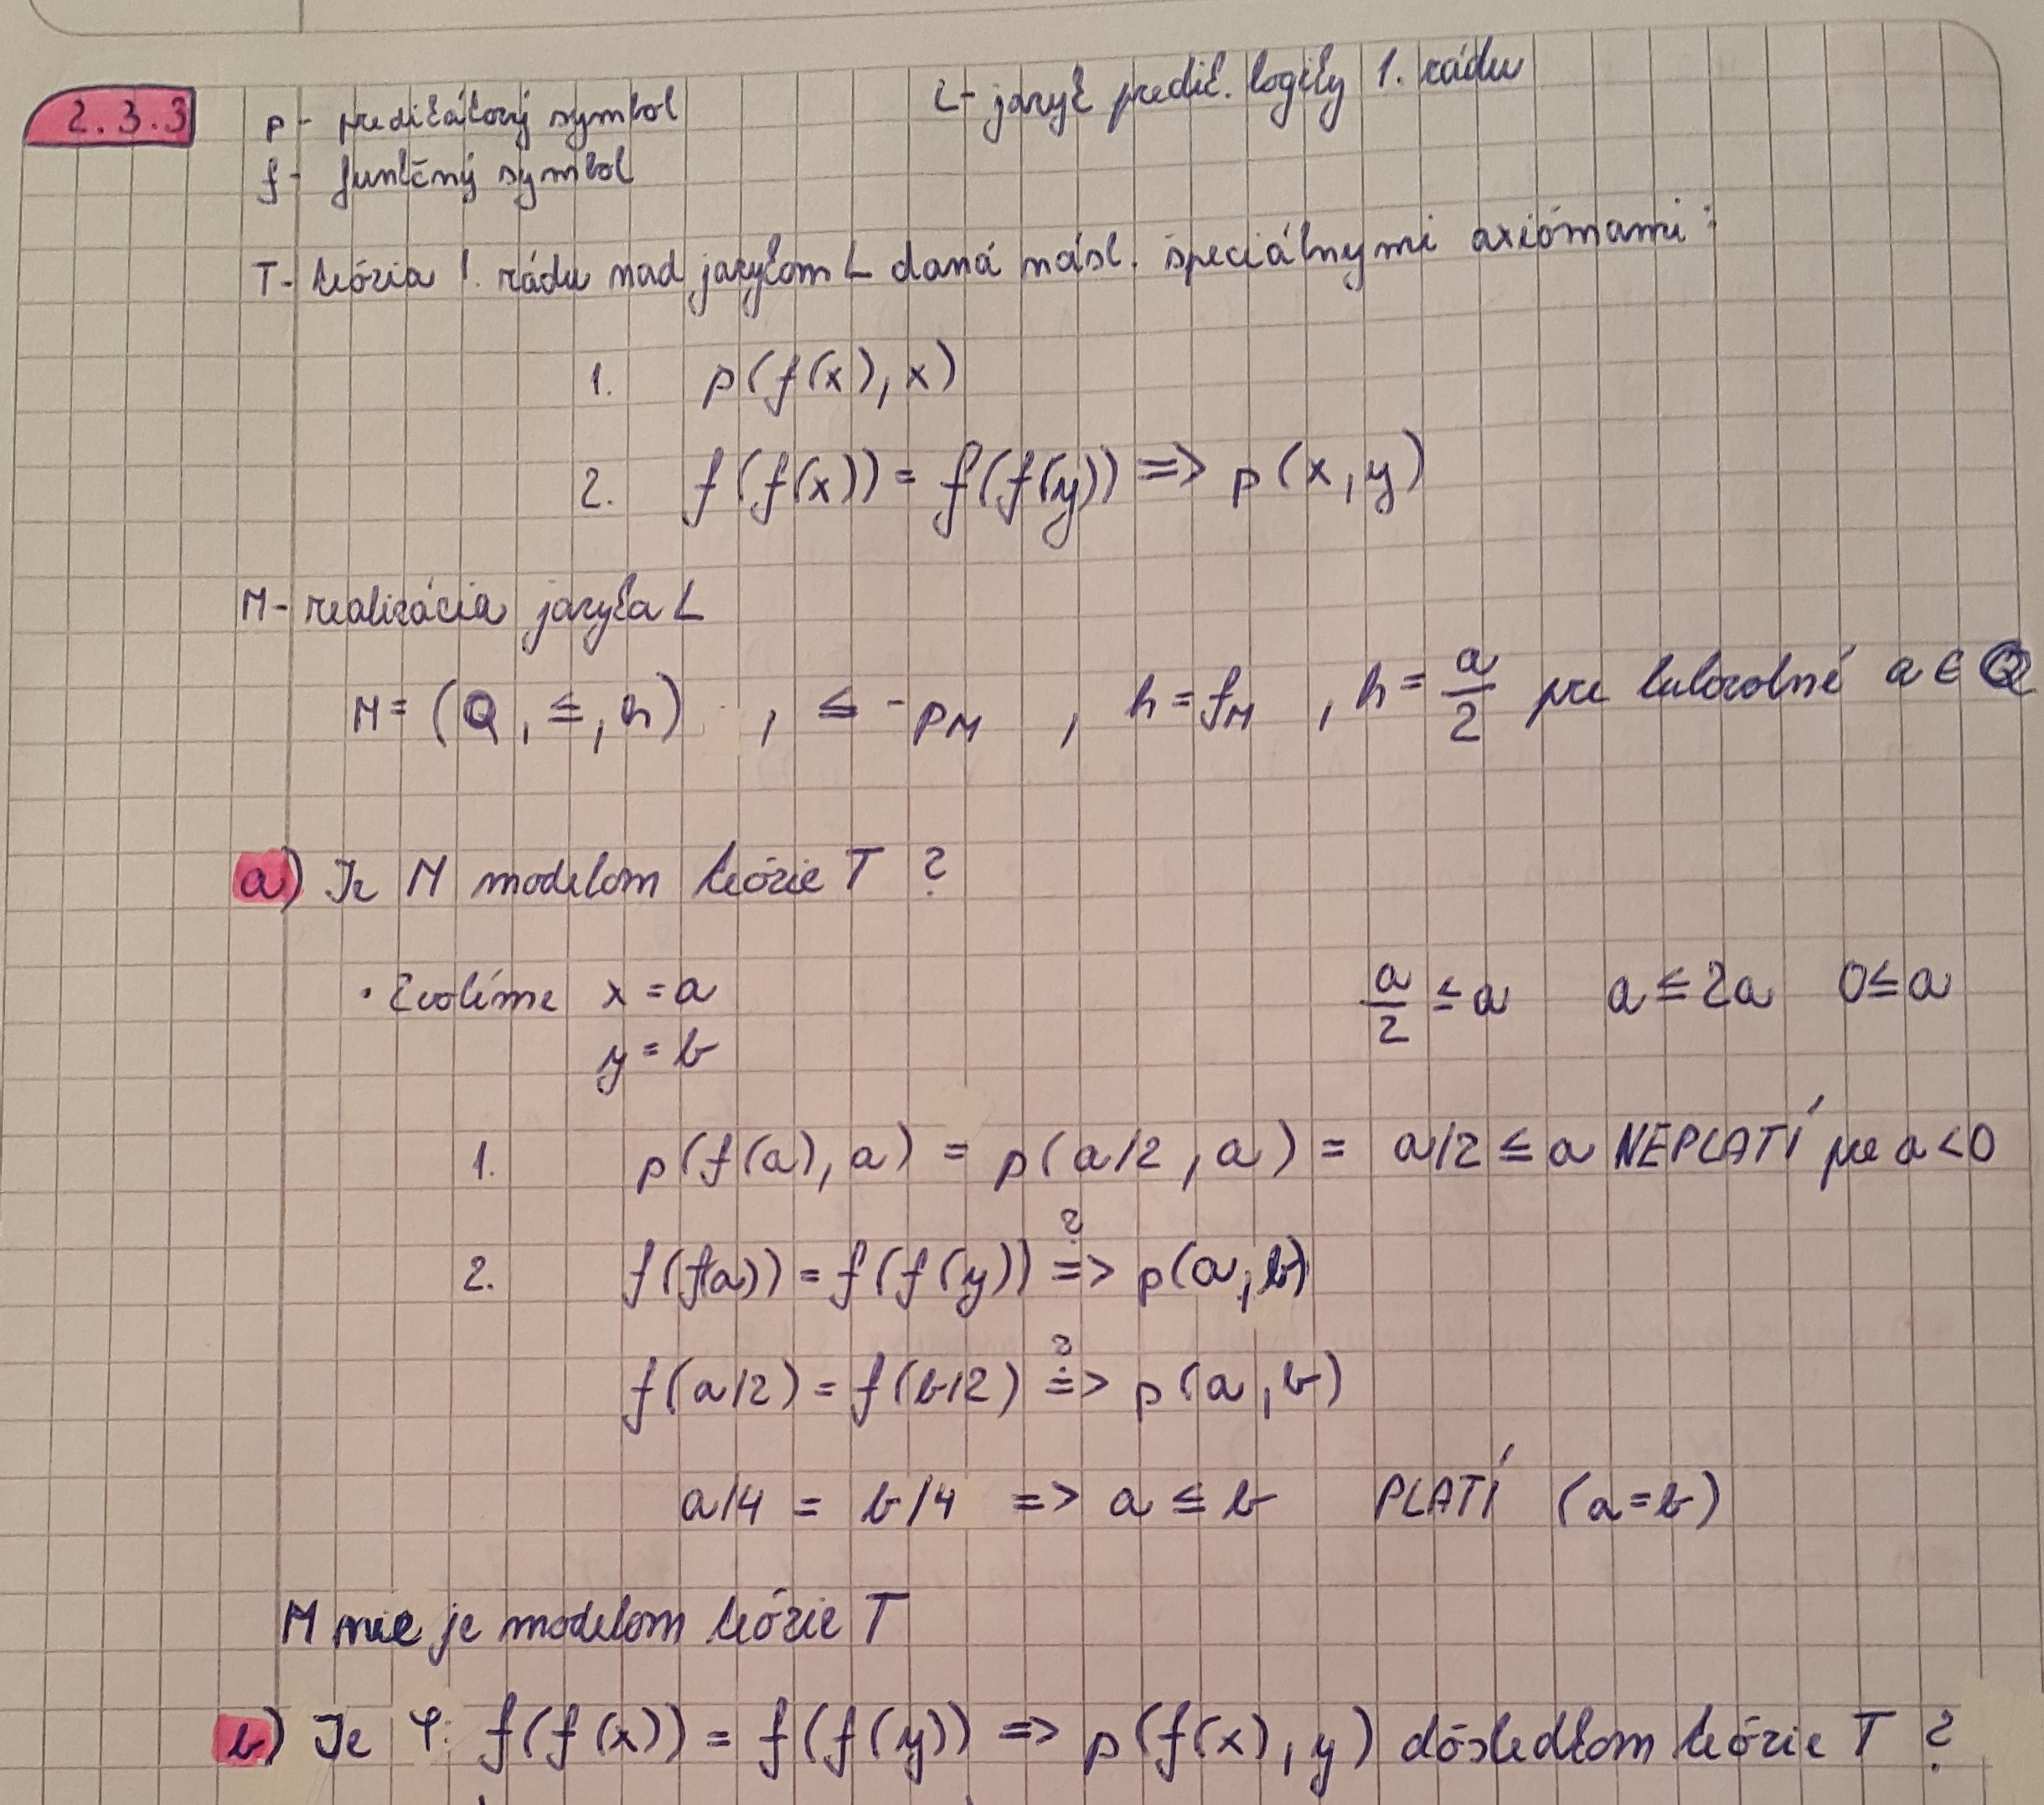 2.3.3 p - predikátový symbol L - jazyk predik. logiky 1. rádu
f - funkčný symbol
T - teória 1. rádu nad jazykom L daná násl. špeciálnymi axiómami:
1. p(f(x), x)
2. f(f(x)) = f(f(y)) => p(x, y)
M - realizácia jazyka L
M = (Q, ≤, h) , ≤ - pM , h = fM , h = a/2 pre ľubovoľné a ∈ Q
a) Je M modelom teórie T ?
• Zvolíme x = a a/2 ≤ a a ≤ 2a 0 ≤ a
y = b
1. p(f(a), a) = p(a/2, a) = a/2 ≤ a NEPLATÍ pre a < 0
2. f(f(a)) = f(f(y)) ?=> p(a, b)
f(a/2) = f(b/2) ?=> p(a, b)
a/4 = b/4 => a ≤ b PLATÍ (a = b)
M nie je modelom teórie T
b) Je φ: f(f(x)) = f(f(y)) => p(f(x), y) dôsledkom teórie T ?